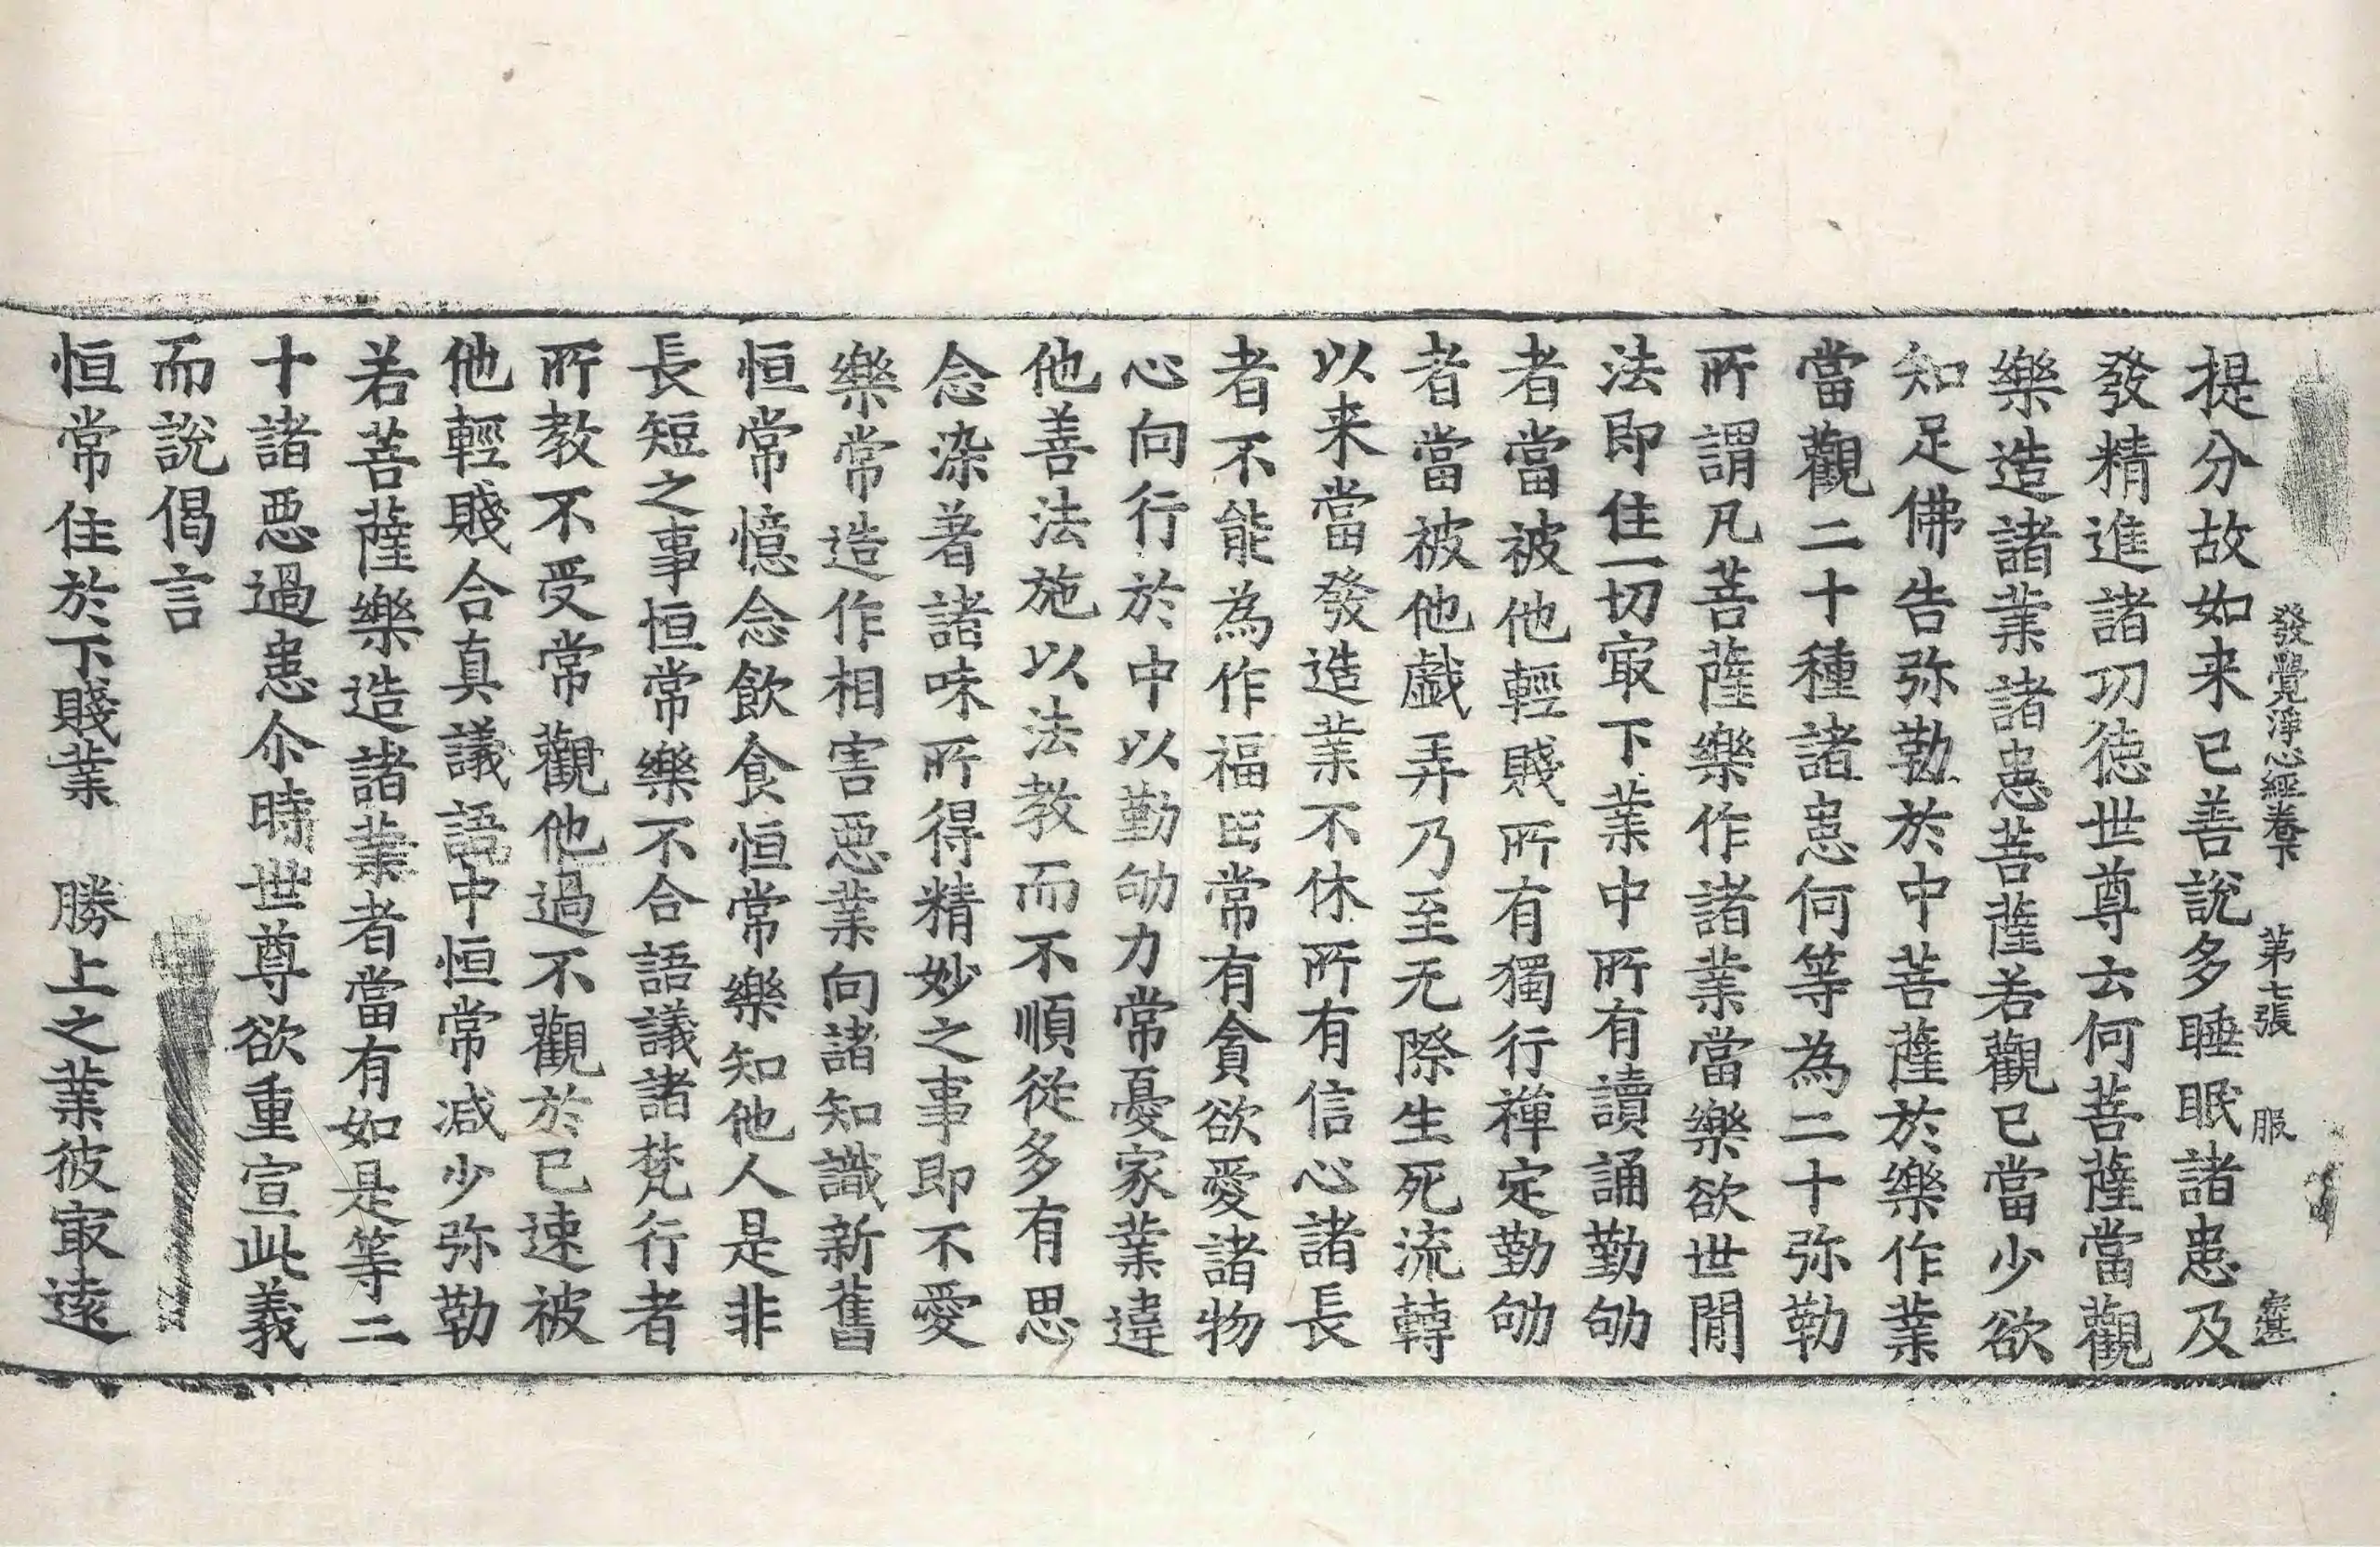 發覺淨心經卷下 第七張 服
提分故如来已善說多睡眠諸患及
發精進諸功徳世尊云何菩薩當觀
樂造諸業諸患菩薩若觀已當少欲
知足佛告弥勒於中菩薩於樂作業
當觀二十種諸患何等為二十弥勒
所謂凡菩薩樂作諸業當樂欲世間
法即住一切㝡下業中所有讀誦勤劬
者當被他輕賤所有獨行禪定勤劬
者當被他戲弄乃至无際生死流轉
以来當發造業不休所有信心諸長
者不能為作福田常有貪欲愛諸物
心向行於中以勤劬力常憂家業違
他善法施以法教而不順從多有思
念染著諸味所得精妙之事即不愛
樂常造作相害惡業向諸知識新舊
恒常憶念飲食恒常樂知他人是非
長短之事恒常樂不合語議諸梵行者
所教不受常觀他過不觀於已速被
他輕賤合真議語中恒常減少弥勒
若菩薩樂造諸業者當有如是等二
十諸惡過患尒時世尊欲重宣此義
而說偈言
恒常住於下賤業 勝上之業彼㝡遠